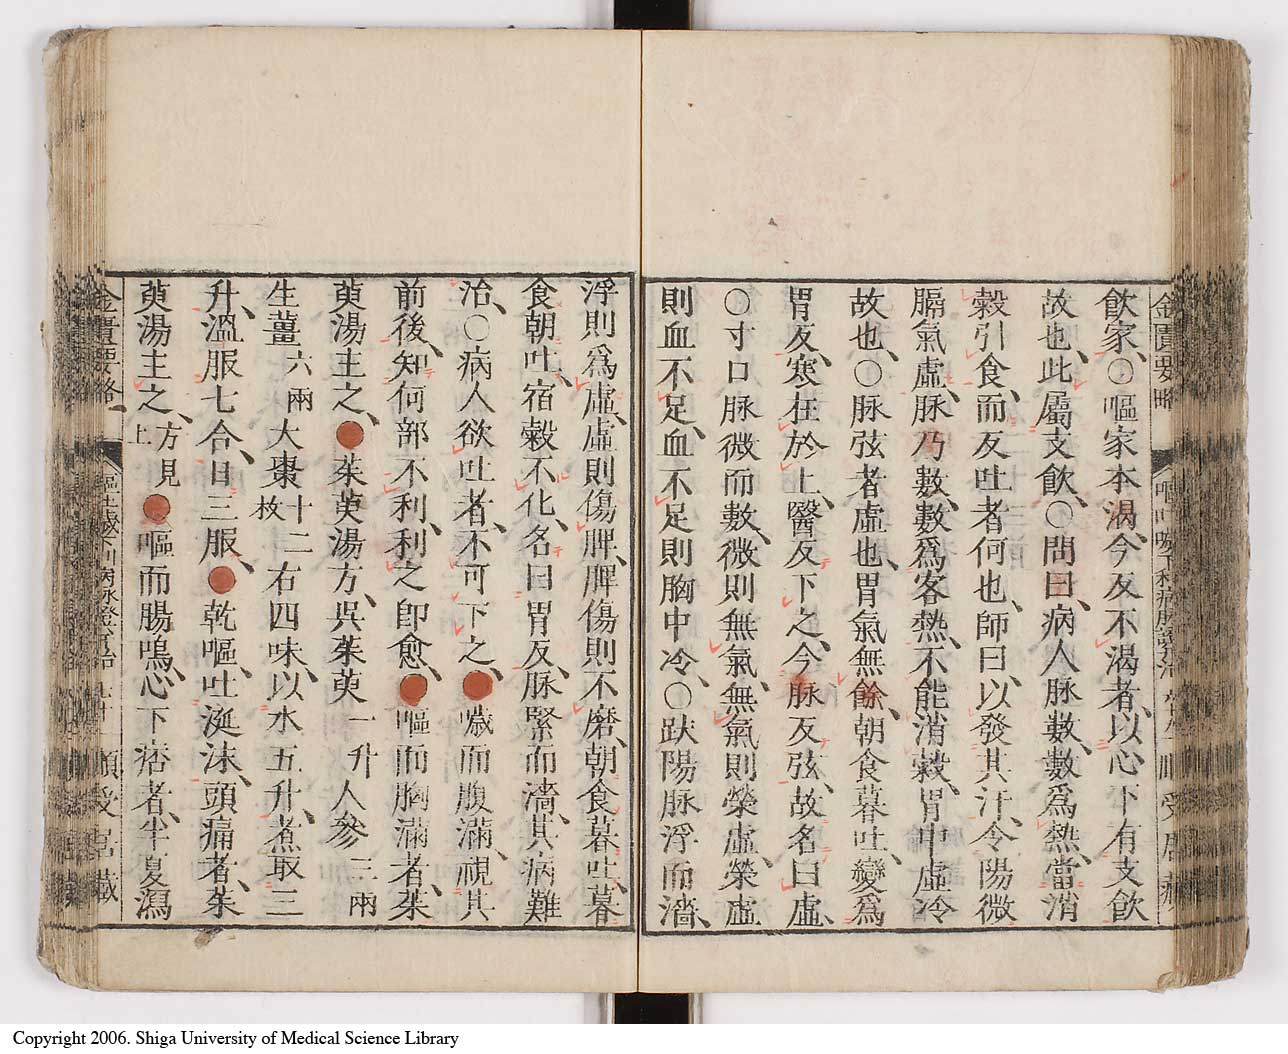 金匱要略
飲家、○嘔家本渴、今反不渴者、以心下有支飲
故也、此屬支飲、○問曰、病人脉數、數爲熱、當消
穀引食、而反吐者何也、師曰、以發其汗、令陽微
膈氣虛、脉乃數、數爲客熱、不能消穀、胃中虛冷
故也、○脉弦者虛也、胃氣無餘、朝食暮吐、變爲
胃反、寒在於上、醫反下之、今脉反弦、故名曰虛、
○寸口脉微而數、微則無氣、無氣則榮虛、榮虛
則血不足、血不足則胸中冷、○趺陽脉浮而濇、
浮則爲虛、虛則傷脾、脾傷則不磨、朝食暮吐、暮
食朝吐、宿穀不化、名曰胃反、脉緊而濇、其病難
治、○病人欲吐者、不可下之、●噦而腹滿、視其
前後、知何部不利、利之卽愈、●嘔而胸滿者、茱
萸湯主之、●茱萸湯方、吳茱萸一升人參三兩
生薑六兩大棗十二枚右四味、以水五升、煮取三
升、溫服七合、日三服、●乾嘔、吐涎沫、頭痛者、茱
萸湯主之、方見上●嘔而腸鳴、心下痞者、半夏瀉
金匱要略